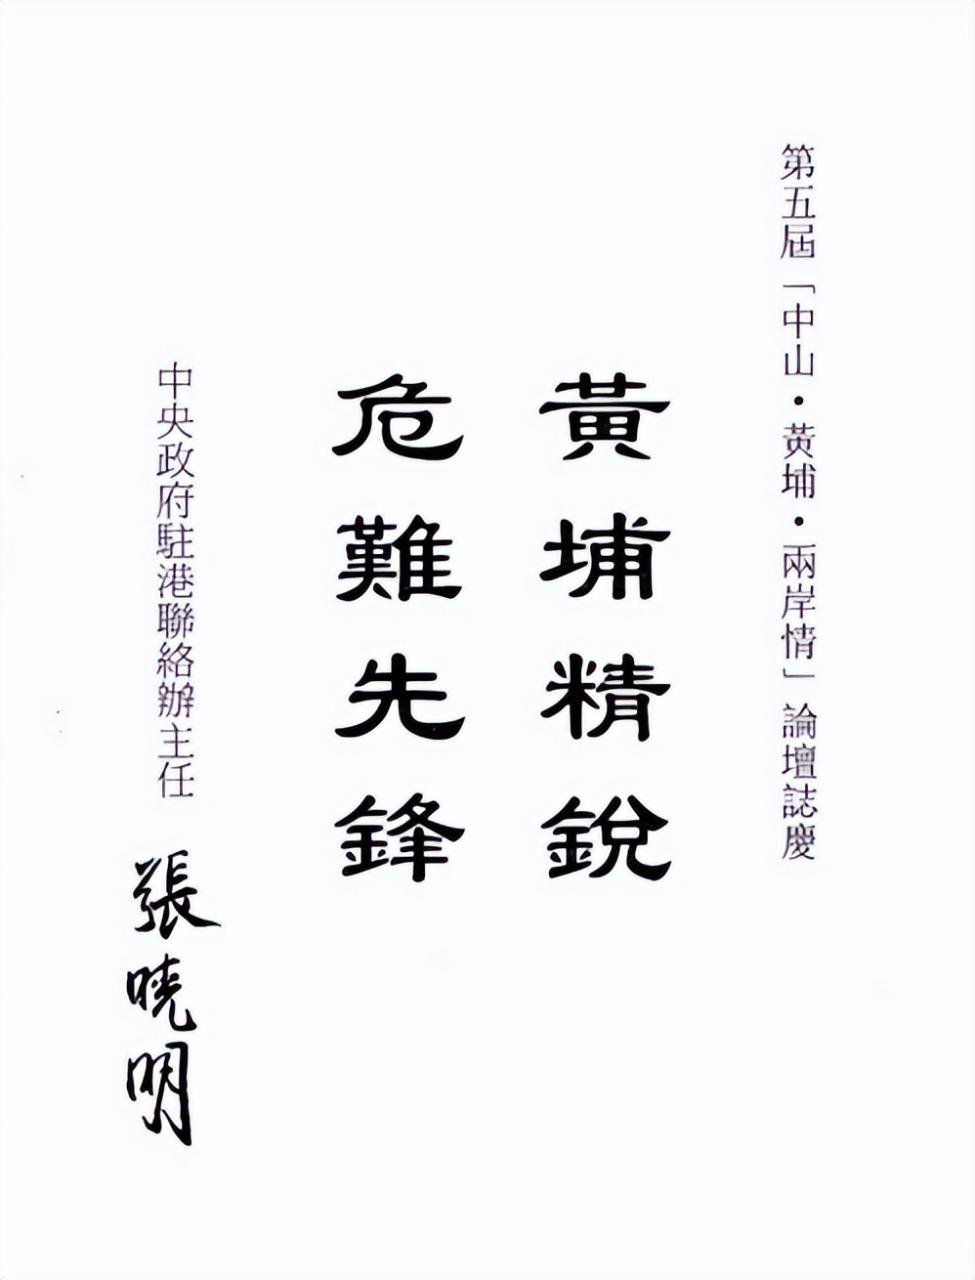 第五屆「中山•黃埔•兩岸情」論壇誌慶
黃埔精銳
危難先鋒
中央政府駐港聯絡辦主任
張曉明